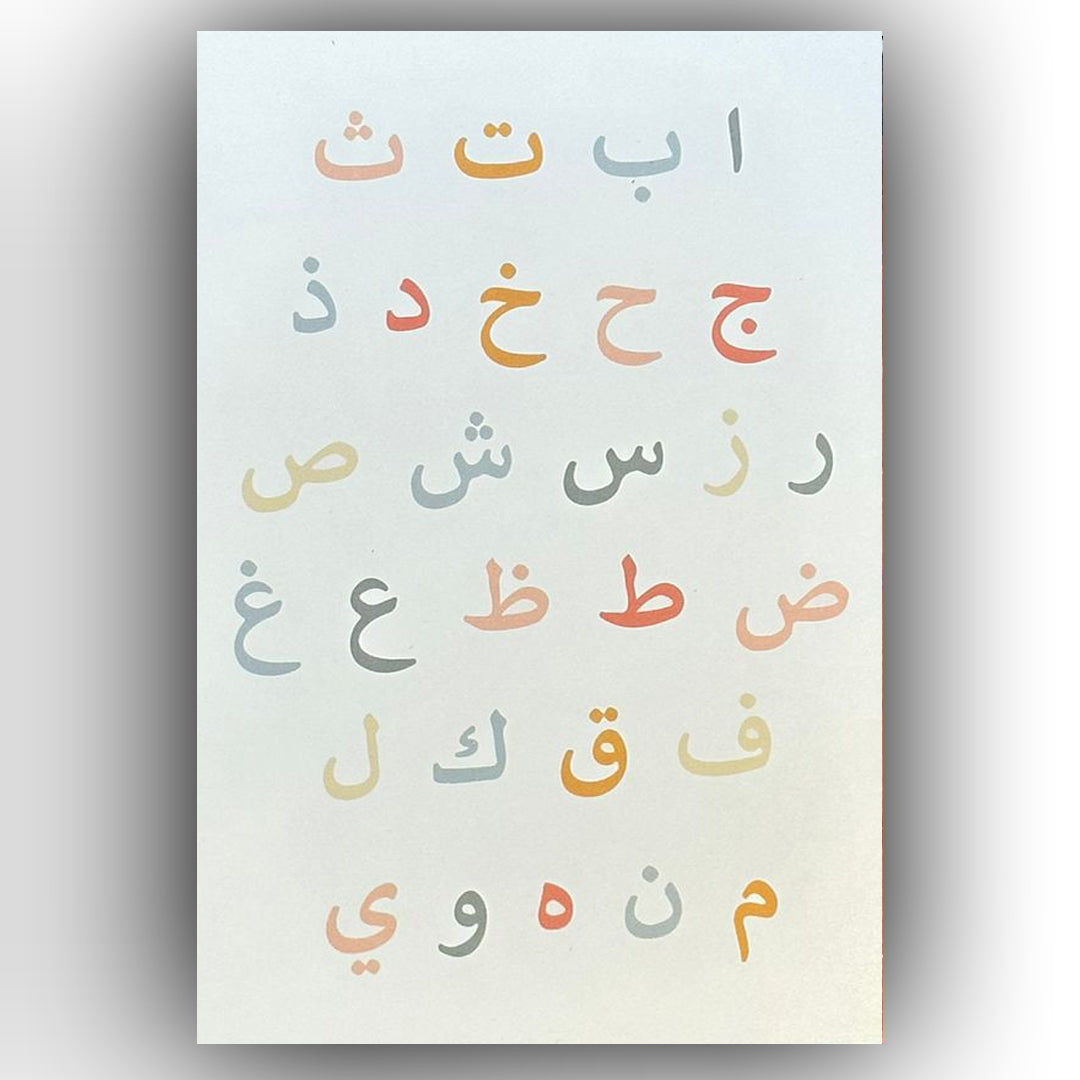 ا ب ت ث
ج ح خ د ذ
ر ز س ش ص
ض ط ظ ع غ
ف ق ك ل
م ن ه و ي